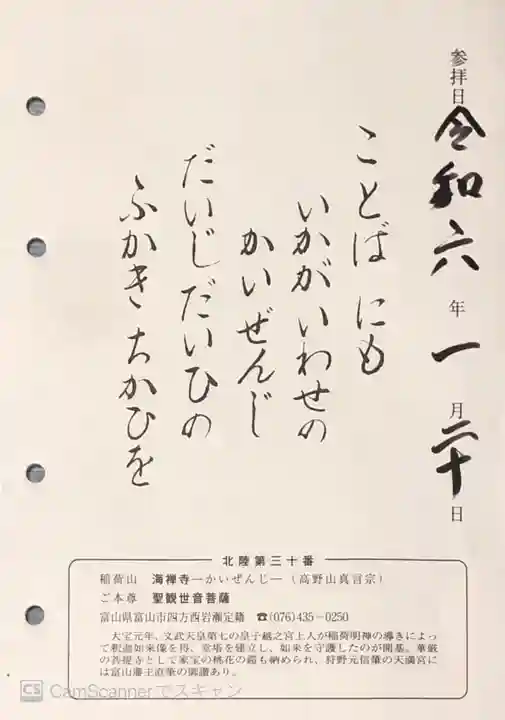 参拝日 令和六年一月二十日
ことばにも
いかがいわせの
かいぜんじ
だいじだいひの
ふかきちかひを
北陸第三十番
稲荷山 海禅寺―かいぜんじ―(高野山真言宗)
ご本尊 聖観世音菩薩
富山県富山市四方西岩瀬定籍 ☎(076)435-0250
大宝元年、文武天皇第七の皇子越之宮上人が稲荷明神の導きによっ
て釈迦如来像を得、堂塔を建立し、如来を守護したのが開基。華厳
の菩提寺として家宝の桃花の鐙も納められ、狩野元信筆の天満宮に
は富山藩主直筆の御讃あり。
CS CamScannerでスキャン